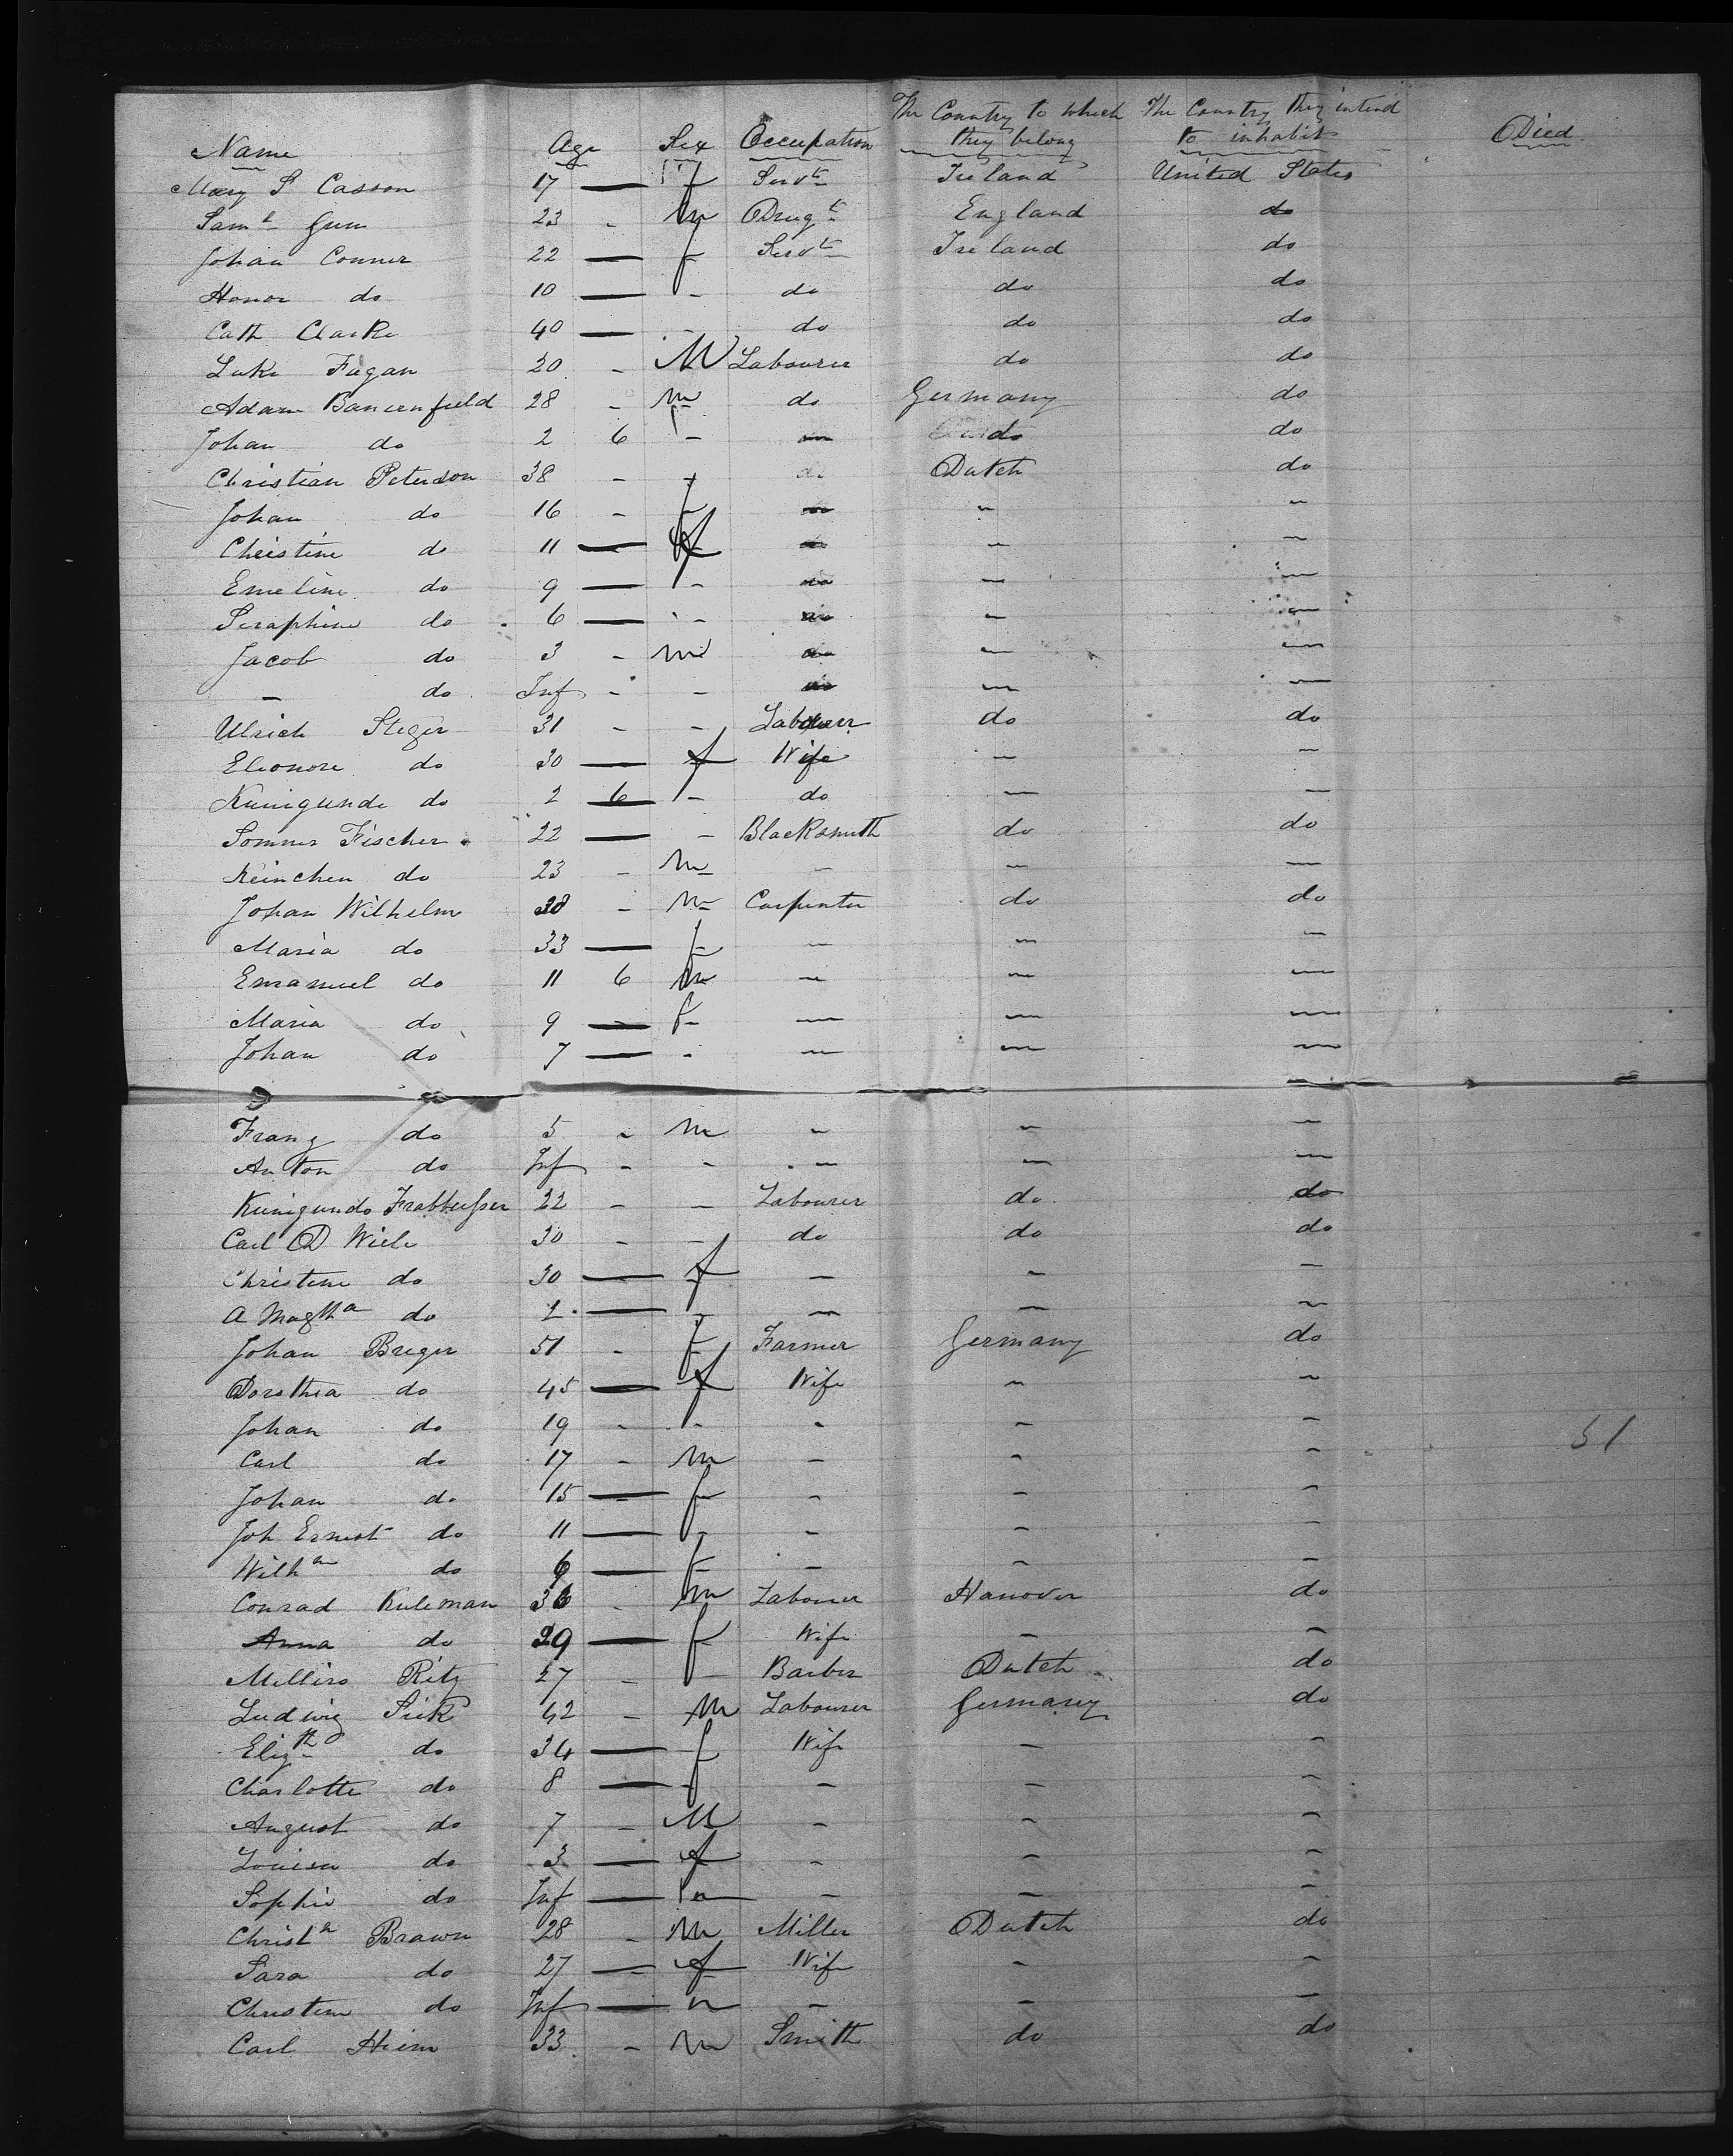 Name Age Sex Occupation The Country to which they belong The Country they intend to inhabit Died
Mary S Casson 17 — f Servt Ireland United States
Saml Gun 23 - m Drugt England do
Johan Conner 22 — f Servt Ireland do
Honor do 10 — - do do do
Cath Clarke 40 — - do do do
Luke Fagan 20 - M Labourer do do
Adam Bancenfield 28 - m do Germany do
Johan do 2 6 - do do
Christian Peterson 38 - - do Dutch do
Johan do 16 - f " "
Christine do 11 — f " "
Emeline do 9 — - " "
Seraphine do 6 — - " "
Jacob do 3 - m " "
- do Inf - - " "
Ulrich Steger 31 - - Labourer do do
Eleonore do 30 — f Wife " "
Kunigunde do 2 6 - do " "
Sommer Fischer 22 — - Blacksmith do do
Reinchen do 23 - m - " "
Johan Wilhelm 38 - m Carpenter do do
Maria do 33 — f " " "
Emanuel do 11 6 m " " "
Maria do 9 — f " " "
Johan do 7 — - " " "
Franz do 5 - m " " "
Anton do Inf - - " " "
Kunigundo 22 - - Labourer do do
Carl D Wiele 30 - - do do do
Christine do 30 — f " " "
A Magtha do 2 — - " " "
Johan Breger 51 - f Farmer Germany do
Dorothea do 45 — f Wife " "
Johan do 19 - - - " "
Carl do 17 - m - " " 51
Johan do 15 — f - " "
Joh Ernest do 11 — - - " "
Wilhm do 6 — f - " "
Conrad Kuleman 36 - m Labourer Hanover do
Anna do 29 — f Wife " "
Milliro Ritz 27 - - Barber Dutch do
Ludwig Sick 42 - M Labourer Germany do
Elizth do 34 — f Wife " "
Charlotte do 8 — f - " "
August do 7 - M - " "
Louisa do 3 — f - " "
Sophie do Inf — " - " "
Christn Brawn 28 - m Miller Dutch do
Sara do 27 — f Wife " "
Christine do Inf — " - " "
Carl Heim 33 - m Smith do do